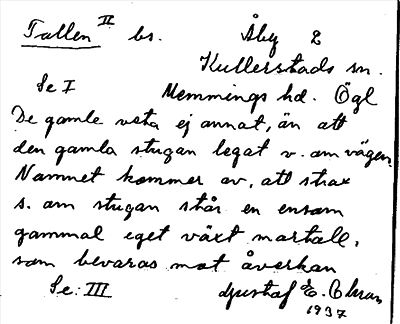 Tallen II bs. Åby 2
Kullerstads sn.
Se I Memmings hd. Ögl
De gamle veta ej annat, än att
den gamla stugan legat v. om vägen.
Namnet kommer av, att strax
s. om stugan står en ensam
gammal eget växt martall,
som bevaras mot åverkan
Se: III Gustaf E. Ohman
1937